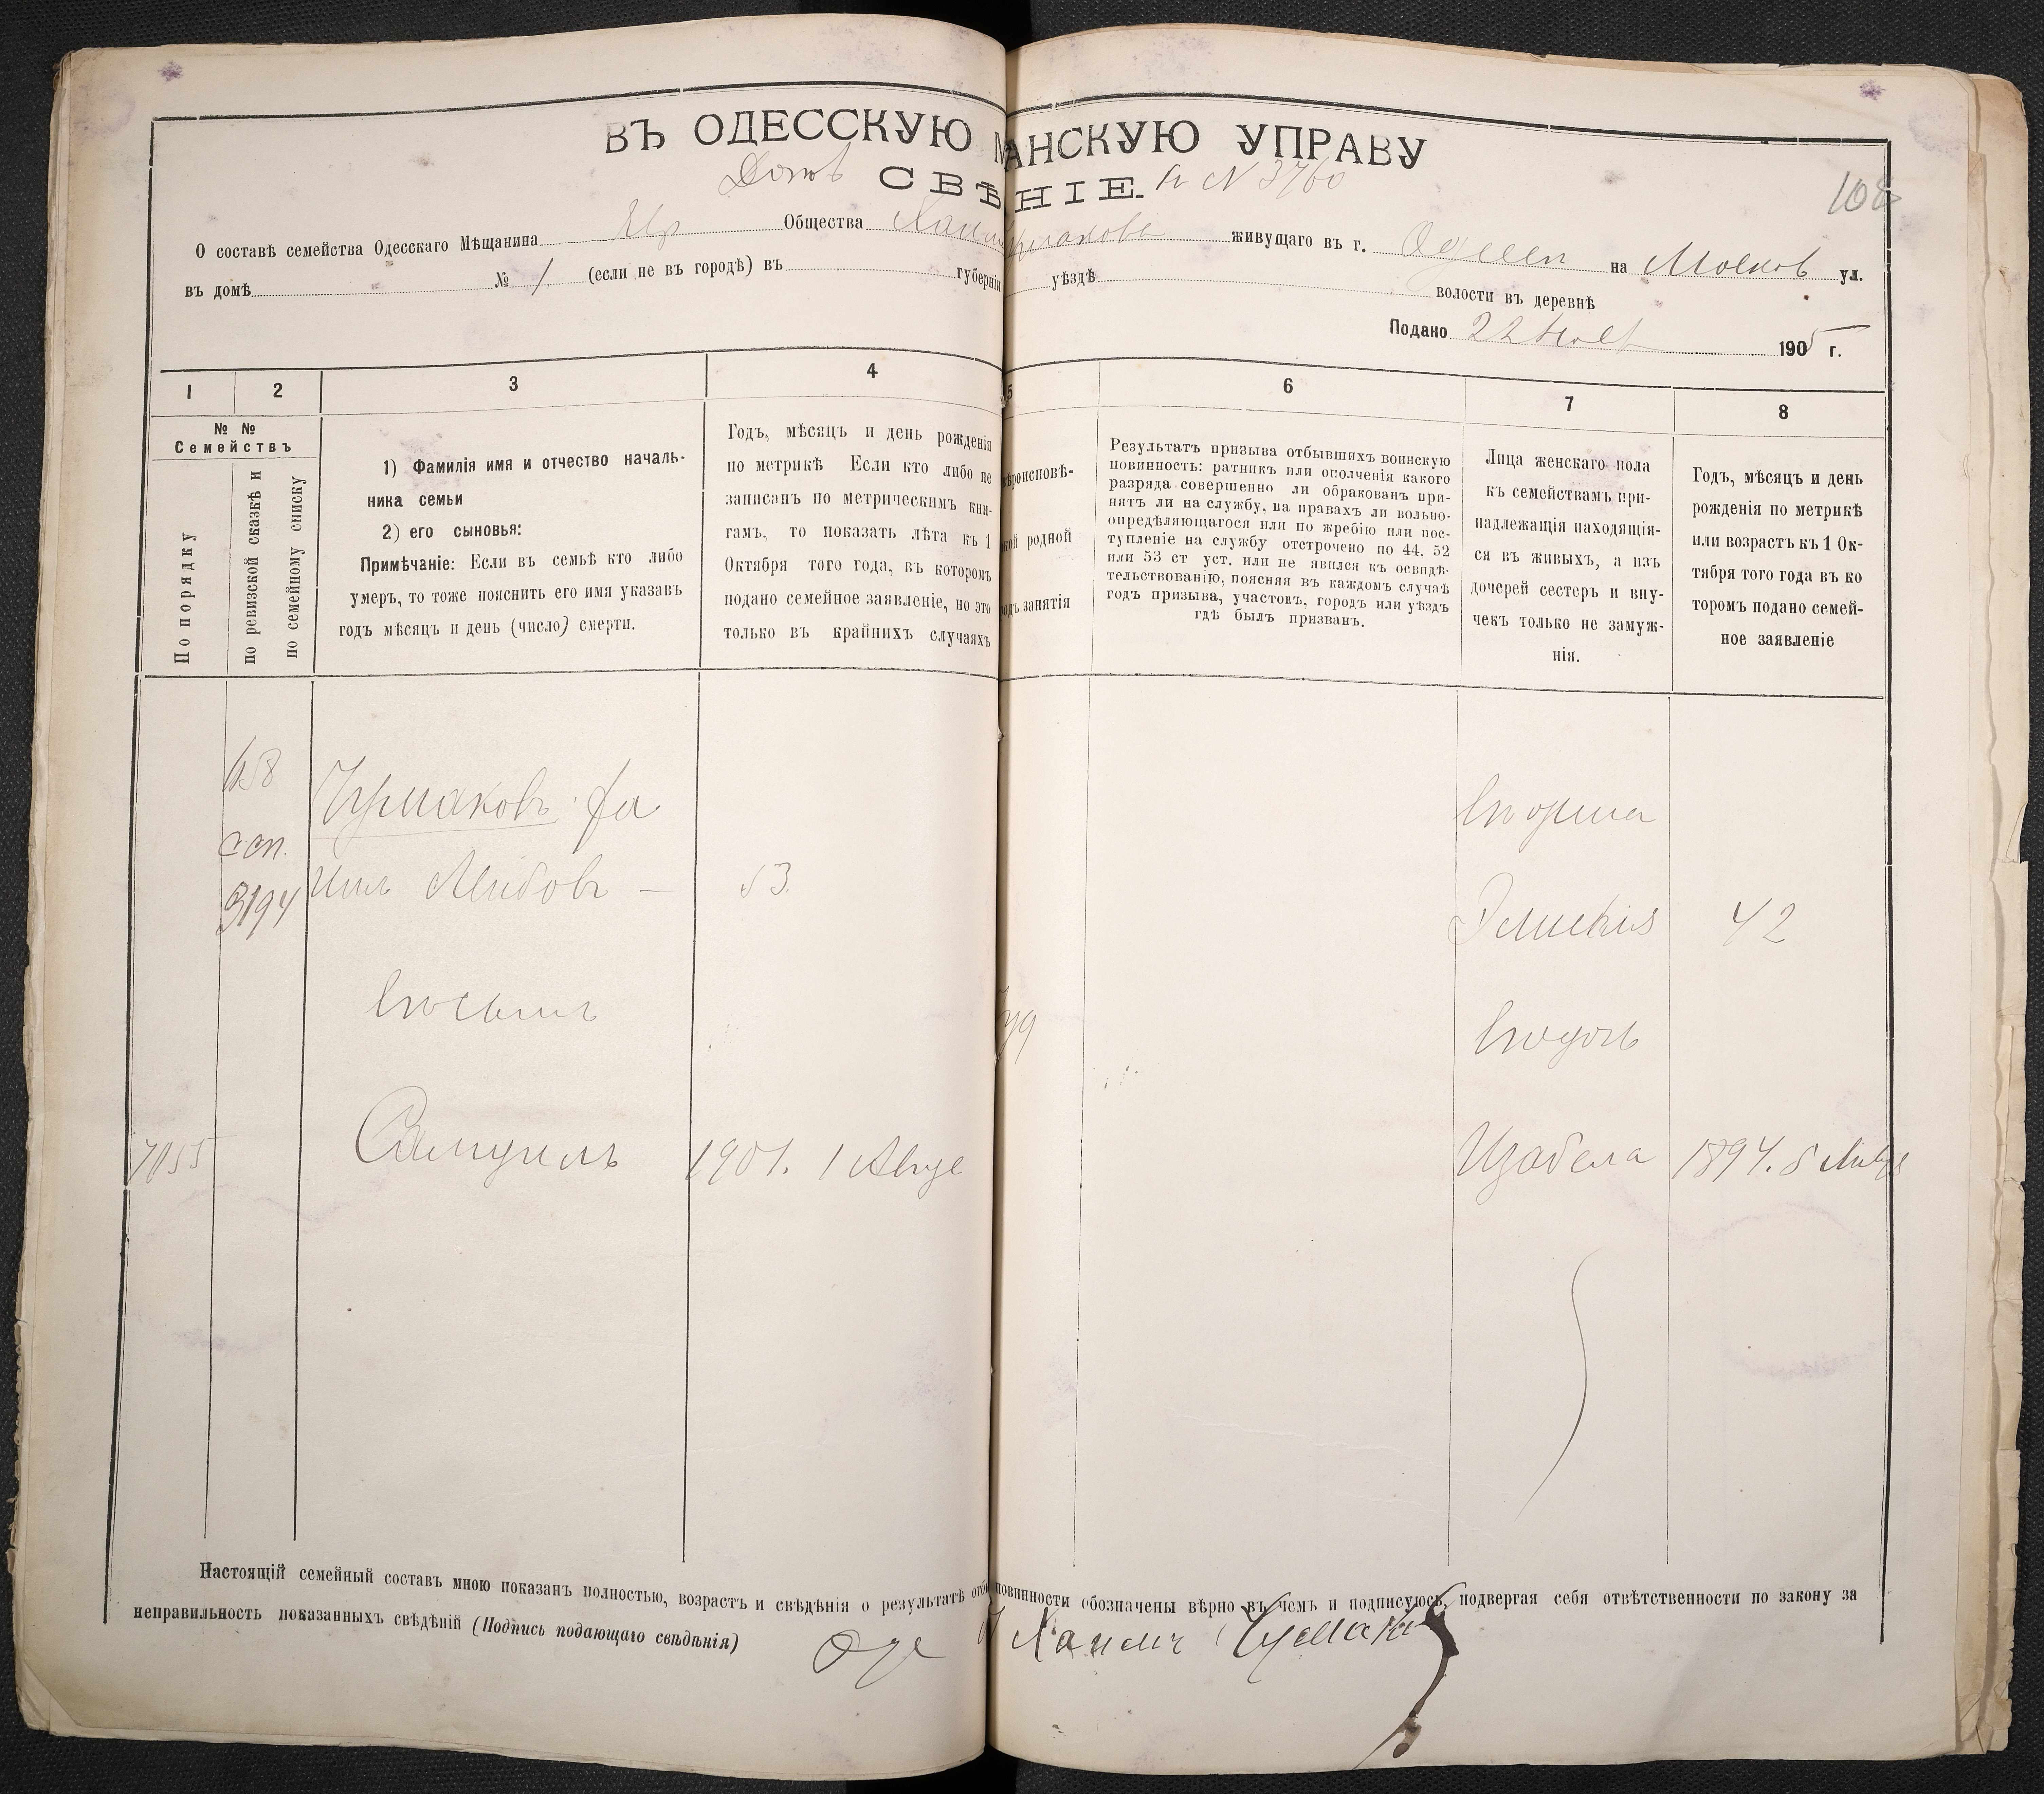 ВЪ ОДЕССКУЮ М АНСКУЮ УПРАВУ
СВѢ НІЕ. N 3760
106
О составѣ семейства Одесскаго Мѣщанина Евр Общества живущаго въ г. Одессѣ на Москов ул.
въ домѣ № 1. (если не въ городѣ) въ губерніи уѣздѣ волости въ деревнѣ
Подано 22 1905 г.
1 2 3 4 5 6 7 8
№ №
Семействъ
По порядку
по ревизской сказкѣ и
по семейному списку
1) Фамилія имя и отчество началь-
ника семьи
2) его сыновья:
Примѣчаніе: Если въ семьѣ кто либо
умеръ, то тоже пояснить его имя указавъ
годъ мѣсяцъ и день (число) смерти.
Годъ, мѣсяцъ и день рожденія
по метрикѣ Если кто либо не
записанъ по метрическимъ кни-
гамъ, то показать лѣта къ 1
Октября того года, въ которомъ
подано семейное заявленіе, но это
только въ крайнихъ случаяхъ
ѣроисповѣ-
кой родной
одъ занятія
Результатъ призыва отбывшихъ воинскую
повинность: ратникъ или ополченія какого
разряда совершенно ли обракованъ при-
нятъ ли на службу, на правахъ ли вольно-
опредѣляющагося или по жребію или пос-
тупленіе на службу отстрочено по 44, 52
или 53 ст уст. или не явился къ освидѣ-
тельствованію, поясняя въ каждомъ случаѣ
годъ призыва, участокъ, городъ или уѣздъ
гдѣ былъ призванъ.
Лица женскаго пола
къ семействамъ при-
надлежащія находящія-
ся въ живыхъ, а изъ
дочерей сестеръ и вну-
чекъ только не замуж-
нія.
Годъ, мѣсяцъ и день
рожденія по метрикѣ
или возрастъ къ 1 Ок-
тября того года въ ко
торомъ подано семей-
ное заявленіе
3194 53
42
Самуилъ 1901. 1 Авгус
Изабела 1894. 8
Настоящій семейный составъ мною показанъ полностью, возрастъ и свѣдѣнія о результатѣ отб повинности обозначены вѣрно въ чемъ и подписуюсь, подвергая себя отвѣтственности по закону за
неправильность показанныхъ свѣдѣній (Подпись подающаго свѣдѣнія)